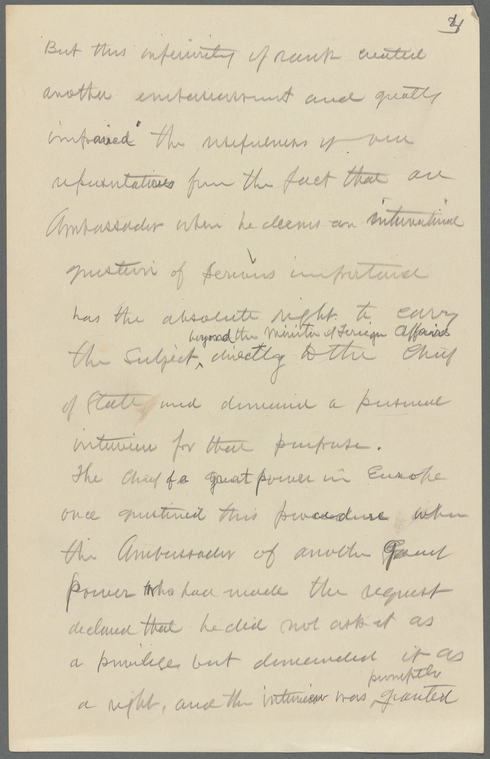 4
But this inferiority of rank created
another embarrassment and greatly
impaired the usefulness of our
representatives from the fact that an
Ambassador when he deems an international
question of serious importance
has the absolute right to carry
beyond the Minister of Foreign Affairs
the subject, directly to the Chief
of State and demand a personal
interview for that purpose.
The Chief of a great power in Europe
once questioned this procedure when
the Ambassador of another Great
Power who had made the request
declared that he did not ask it as
a privilege but demanded it as
promptly
a right, and the interview was granted